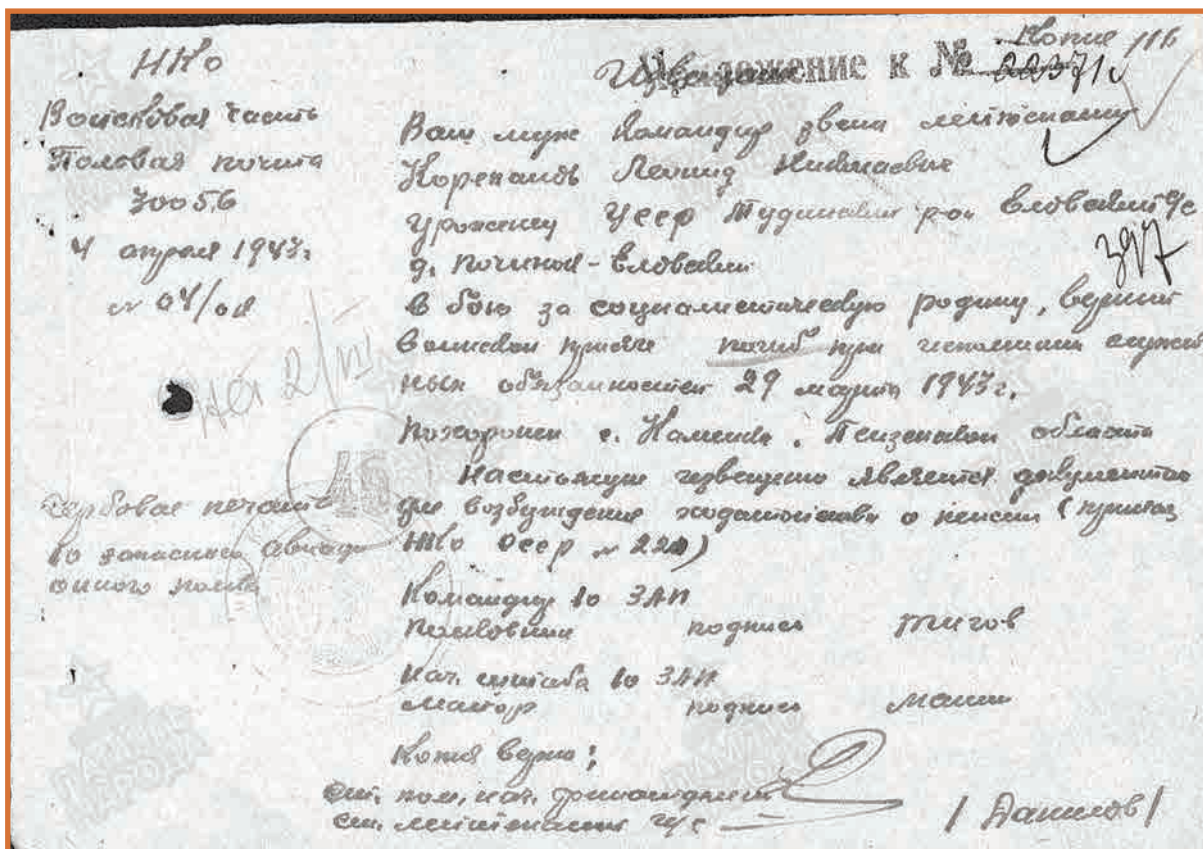 НКО
Войсковая часть
Полевая почта
30056
4 апреля 1943г.
№ 04/
Копия 116
Извещение
Приложение к № 22371с
Ваш муж Командир звена лейтенант
Леонид
Уроженец УССР р-он с/с
д. Починок-
397
в бою за социалистическую родину, верный
воинской присяге погиб при исполнении служеб
ных обязанностей 29 марта 1943г.
Похоронен с. Каменка. Пензенской область
Настоящее извещение является документом
для возбуждения ходатайства о пенсии (приказ
НКО СССР № 220)
Гербовая печать
10 запасного авиаци
онного полка
Командир 10 ЗАП
Полковник подпись Тигов
Нач. штаба 10 ЗАП
майор подпись
Копия верна:
ст. пом. нач.
ст. лейтенант
/Данилов/